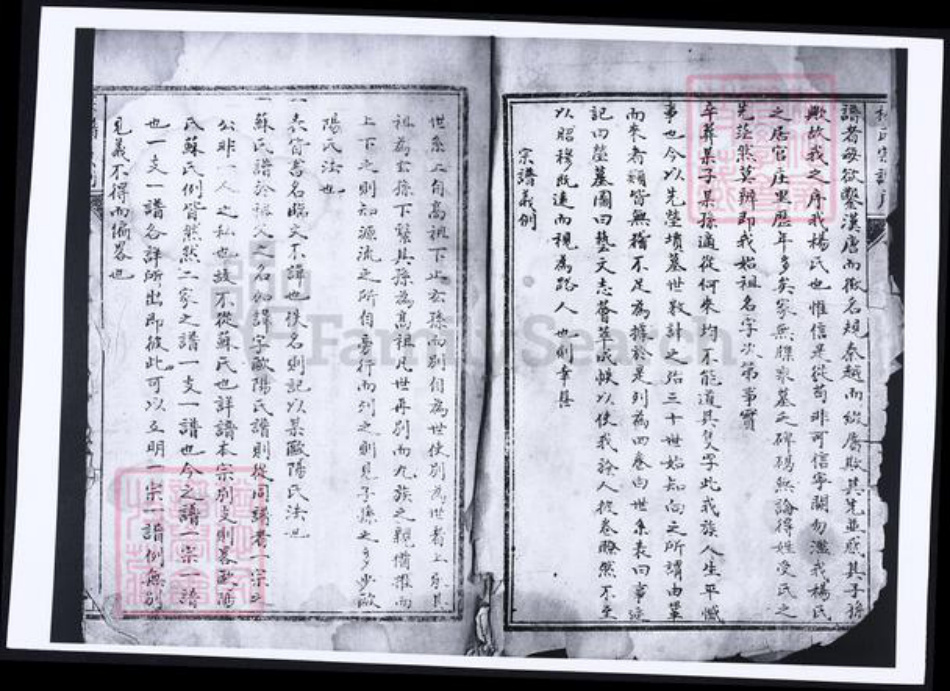 譜者每欲鑿漢唐而徵名規秦越而紛厲欺其先並惑其子孫
歟故我之序我楊氏也惟信是從苟非可信寧闕勿濫我楊氏
之居官庄里歷年多矣家無牒眾墓乏碑碣無論得姓受氏之
先茫然莫辨即我始祖名字次第事實
卒葬某子某孫適從何來均不能道其隻字此我族人生平憾
事也今以先塋墳墓世數計之殆三十世始知向之所謂由單
而來者類皆無稽不足為據於是列為四卷曰世系表曰事迹
記曰塋墓圖曰藝文志薈萃成帙以使我族人披卷瞭然不至
以昭穆既遠而視為路人也則幸甚
宗譜義例
世系上自高祖下止玄孫而別自為世使別為世者上承其
祖為玄孫下繫其孫為高祖凡世再別而九族之親備推而
上下之則知源流之所自旁行而列之則見子孫之多少歐
陽氏法也
一表皆書名臨文不諱也佚名則記以某歐陽氏法也
一蘇氏譜於祖父之名加諱字歐陽氏譜則從同譜者一宗之
公非一人之私也故不從蘇氏也詳譜本宗別支則畧歐陽
氏蘇氏例皆然然二家之譜一支一譜也今之譜一宗一譜
也一支一譜各詳所出即彼此可以互明一宗一譜例無別
見義不得而偏畧也
FamilySearch